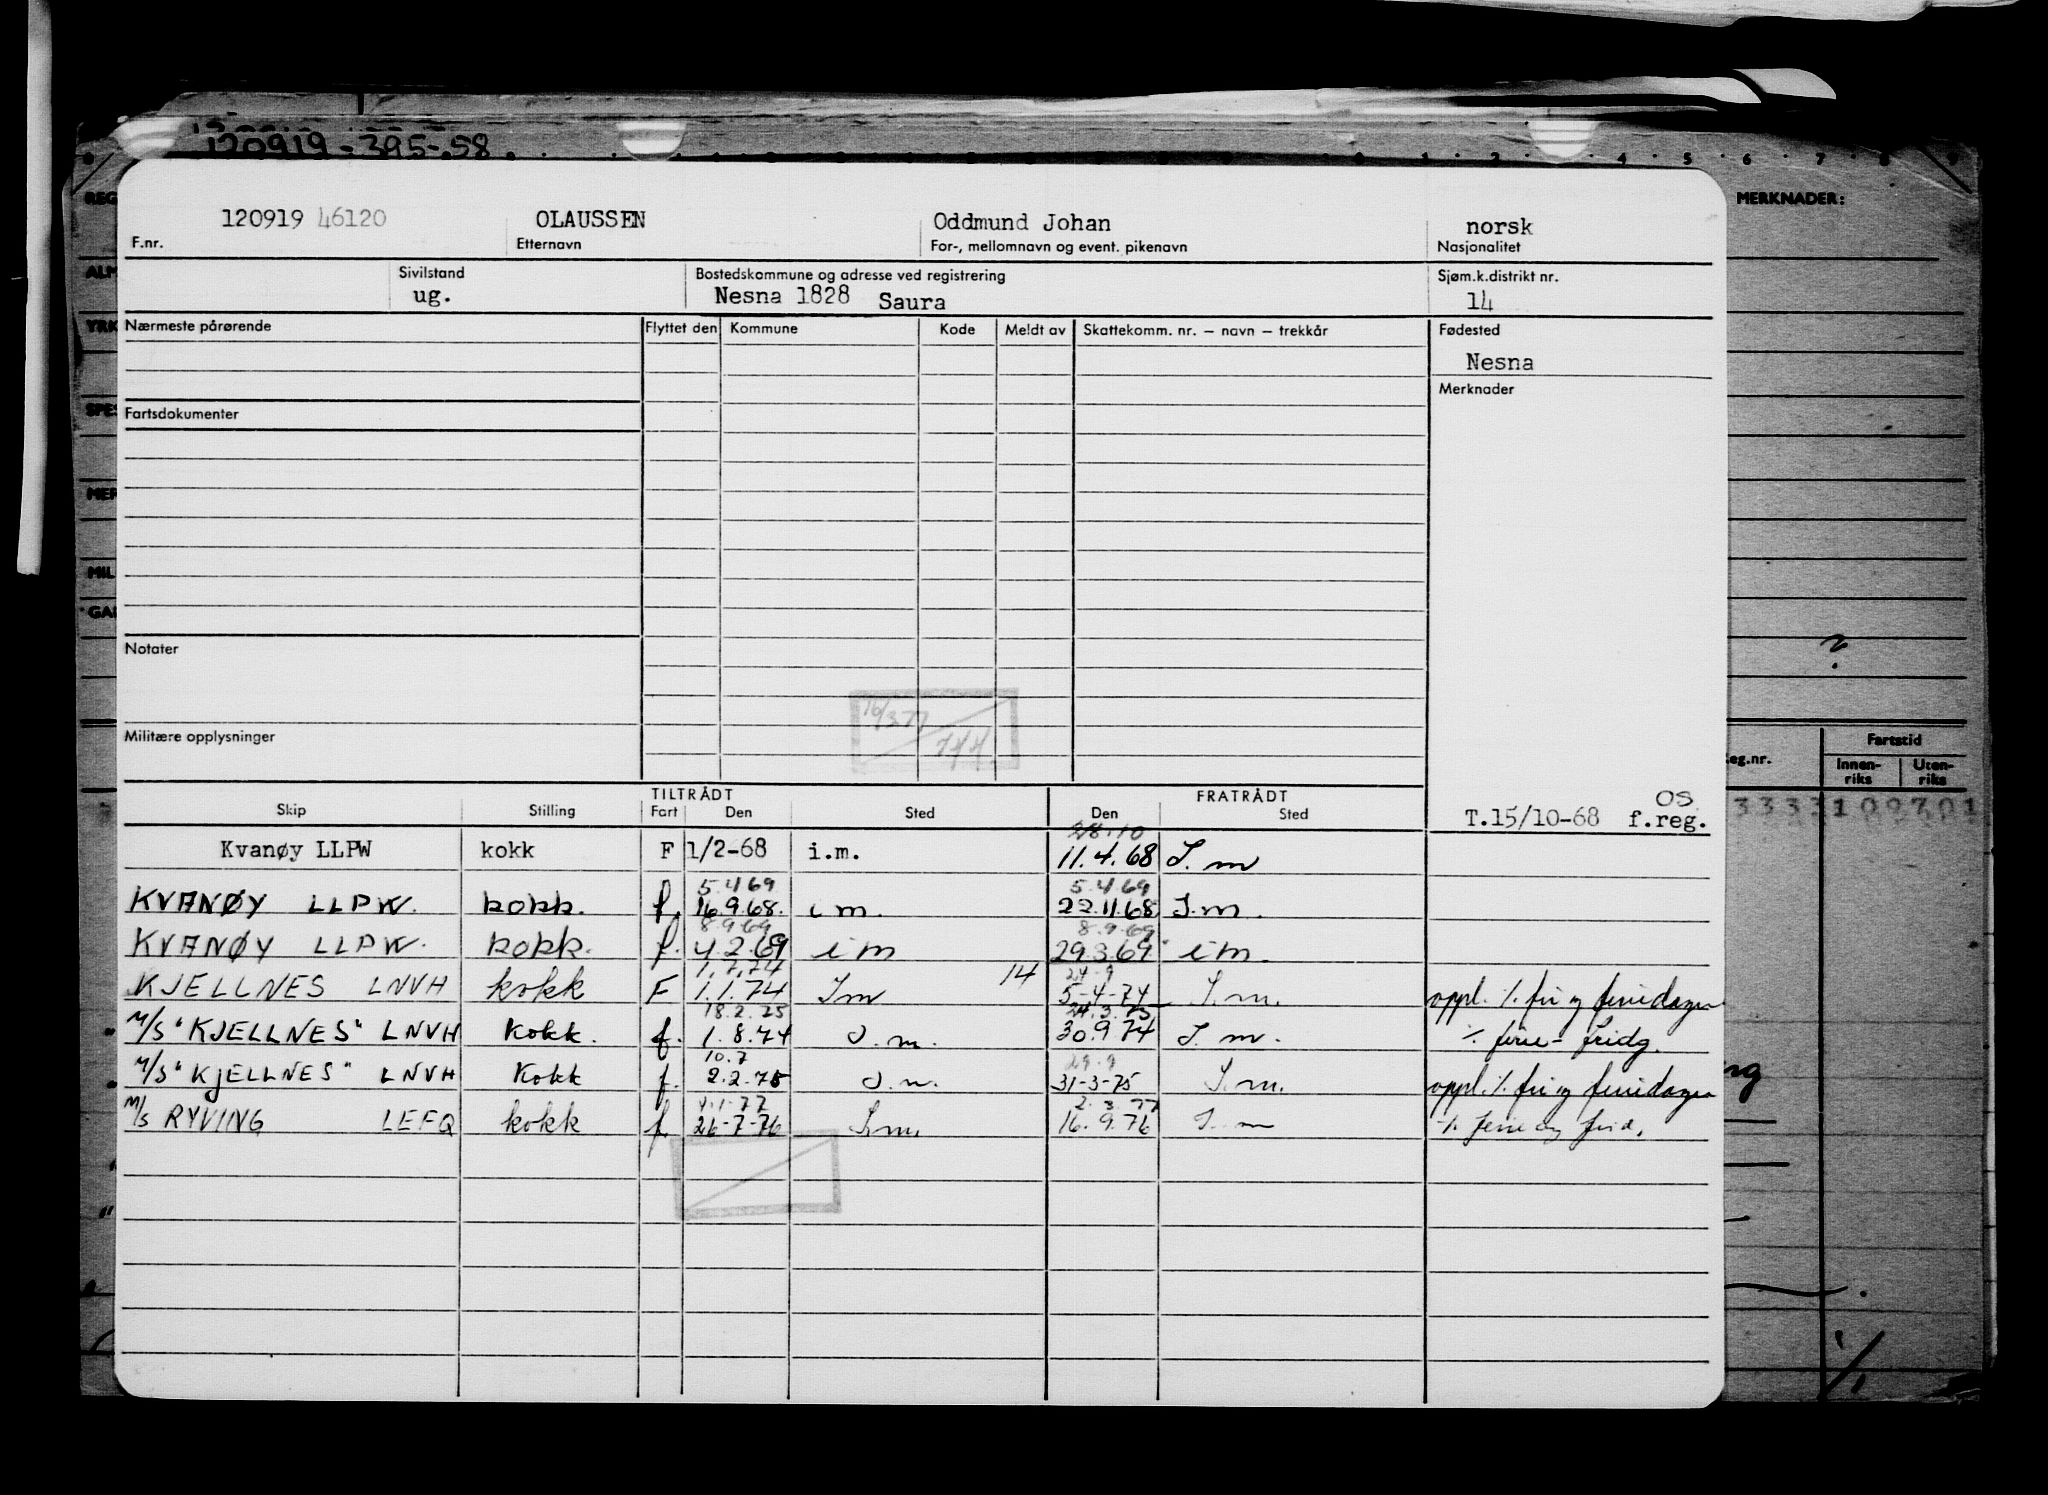 120919-395-58
MERKNADER:
120919 46120 OLAUSSEN Oddmund Johan norsk
F.nr. Etternavn For-, mellomnavn og event. pikenavn Nasjonalitet
Sivilstand Bostedskommune og adresse ved registrering Sjøm.k.distrikt nr.
ug. Nesna 1828 Saura 14
Nærmeste pårørende Flyttet den Kommune Kode Meldt av Skattekomm. nr. – navn – trekkår Fødested
Nesna
Merknader
Fartsdokumenter
Notater
16/3.77
144
Militære opplysninger
Fartstid
eg.nr. Innen-riks Uten-riks
TILTRÅDT FRATRÅDT
Skip Stilling Fart Den Sted Den Sted
OS
T.15/10-68 f.reg.
28.10
Kvanøy LLPW kokk F 1/2-68 i.m. 11.4.68 I.m
5.4 69 5.4.69
KVANØY LLPW. kokk. f. 16.9.68. i m. 22.11.68 I.m.
8.9 69 8.9.69
KVANØY LLPW. kokk. f. 4.2.69 i m 29.3.69 i m.
1.7.74 14 24-9
KJELLNES LNVH kokk F 1.1.74 I m 5-4-74 I.m. oppl. ./. fri og feriedager
18.2.75 24.3.75
M/S "KJELLNES" LNVH Kokk. f. 1.8.74 I.m. 30.9.74 I.m. ./. ferie- fridg.
10.7 29.9
M/S "KJELLNES" LNVH Kokk f. 2.2.75 I.m. 31-3-75 I.m. oppl. ./. fri og feriedager
4.1.77 2.3.77
M/S RYVING LEFQ kokk f. 26-7-76 I.m. 16.9.76 I.m ./. ferie og frid.